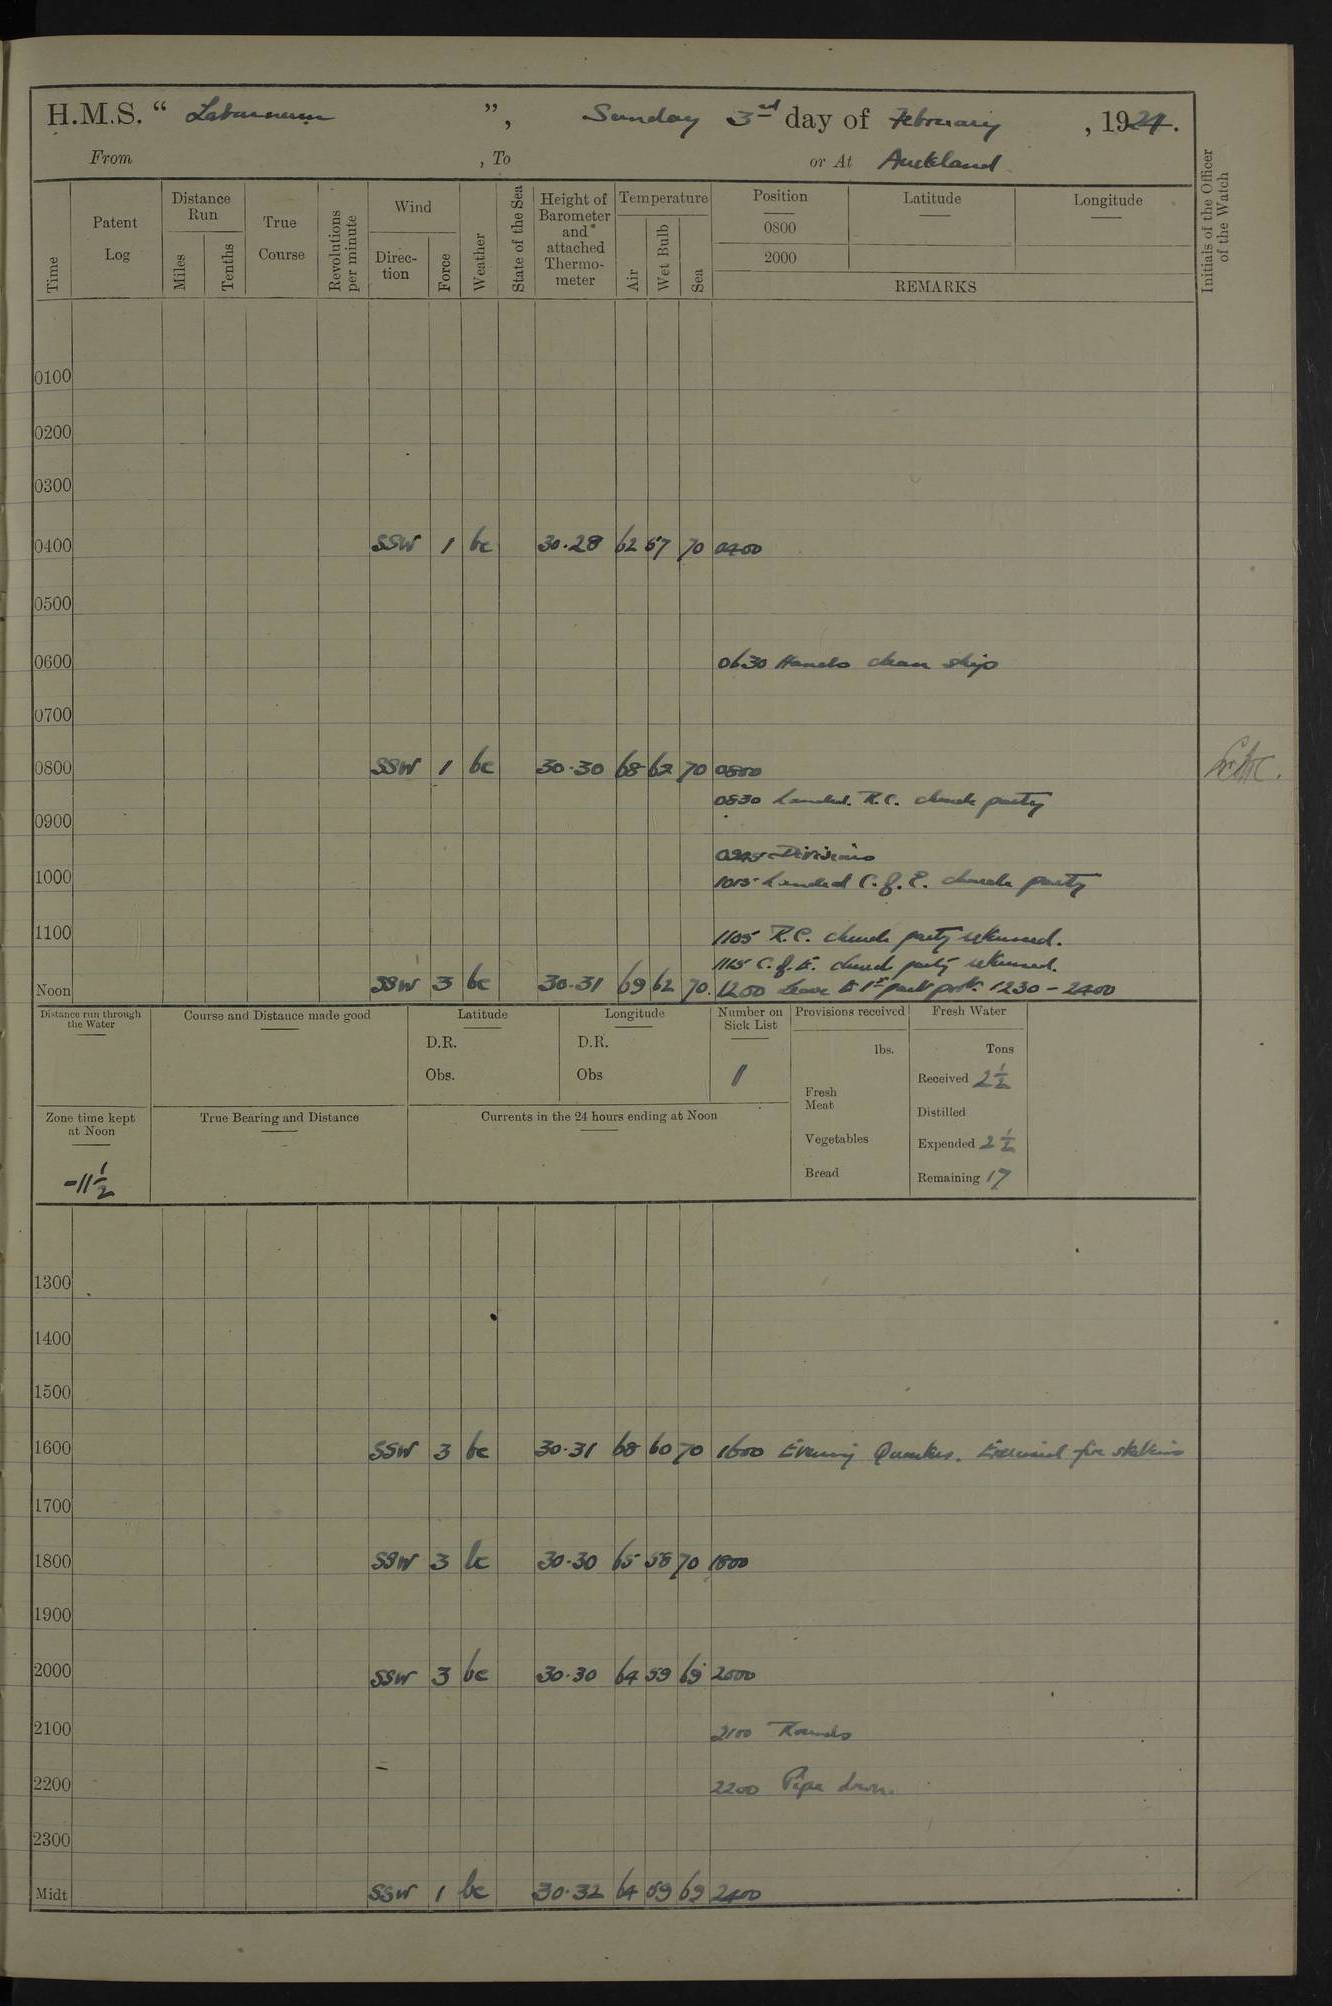 H.M.S. “ Laburnum ”, Sunday 3rd day of February, 1924.
From , To or At Auckland
Time Patent Log Distance Run Miles Tenths True Course Revolutions per minute Wind Direc-tion Force Weather State of the Sea Height of Barometer and attached Thermo-meter Temperature Air Wet Bulb Sea Position 0800 2000 Latitude Longitude REMARKS Initials of the Officer of the Watch
0100
0200
0300
0400 SSW 1 bc 30.28 62 57 70 0400
0500
0600 0630 Hands clean ship
0700
0800 SSW 1 bc 30.30 68 62 70 0800
0830 Landed R.C. church party
0900
0945 Divisions
1000 1015 Landed C. of E. church party
1100 1105 R.C. church party returned.
1115 C. of E. church party returned.
Noon SSW 3 bc 30.31 69 62 70. 1200 Leave to 1st part port. 1230 - 2400
Distance run through the Water Course and Distance made good Latitude Longitude Number on Sick List Provisions received Fresh Water
D.R. D.R. lbs. Tons
Obs. Obs 1 Received 2½
Fresh Meat
Zone time kept at Noon True Bearing and Distance Currents in the 24 hours ending at Noon Distilled
Vegetables Expended 2½
-11½ Bread Remaining 17
1300
1400
1500
1600 SSW 3 bc 30.31 68 60 70 1600 Evening Quarters. Exercised fire stations
1700
1800 SSW 3 bc 30.30 65 58 70 1800
1900
2000 SSW 3 bc 30.30 64 59 69 2000
2100 2100 Rounds
2200 2200 Pipe down.
2300
Midt SSW 1 bc 30.32 64 59 69 2400